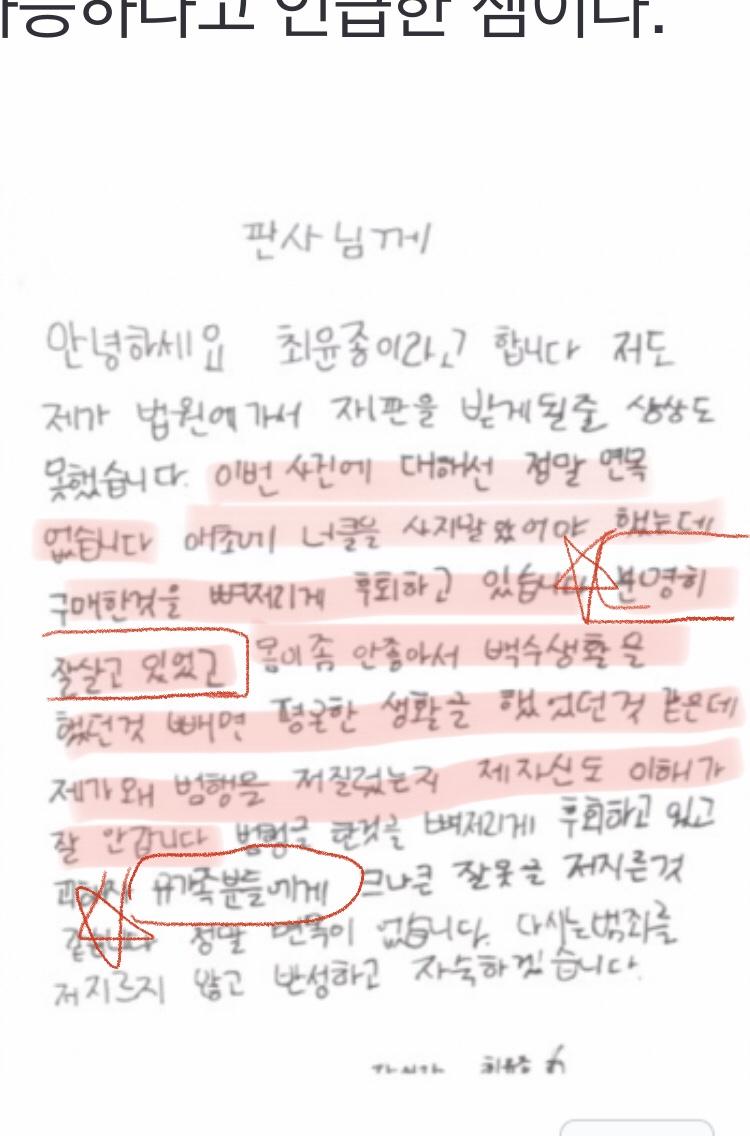 가능하다고 언급한 셈이다.
판사님께
안녕하세요 최윤종이라고 합니다 저도
제가 법원에가서 재판을 받게될줄 상상도
못했습니다. 이번 사건에 대해선 정말 면목
없습니다 애초에 너클을 사지말았어야 했는데
구매한것을 뼈저리게 후회하고 있습니다 분명히
잘살고 있었고 몸이좀 안좋아서 백수생활을
했던것 빼면 평균한 생활을 했었던것 같은데
제가왜 범행을 저질렀는지 제자신도 이해가
잘 안갑니다 범행을 한것을 뼈저리게 후회하고 있고
유가족분들에게 크나큰 잘못을 저지른것
같습니다 정말 면목이 없습니다. 다시는범죄를
저지르지 않고 반성하고 자숙하겠습니다.